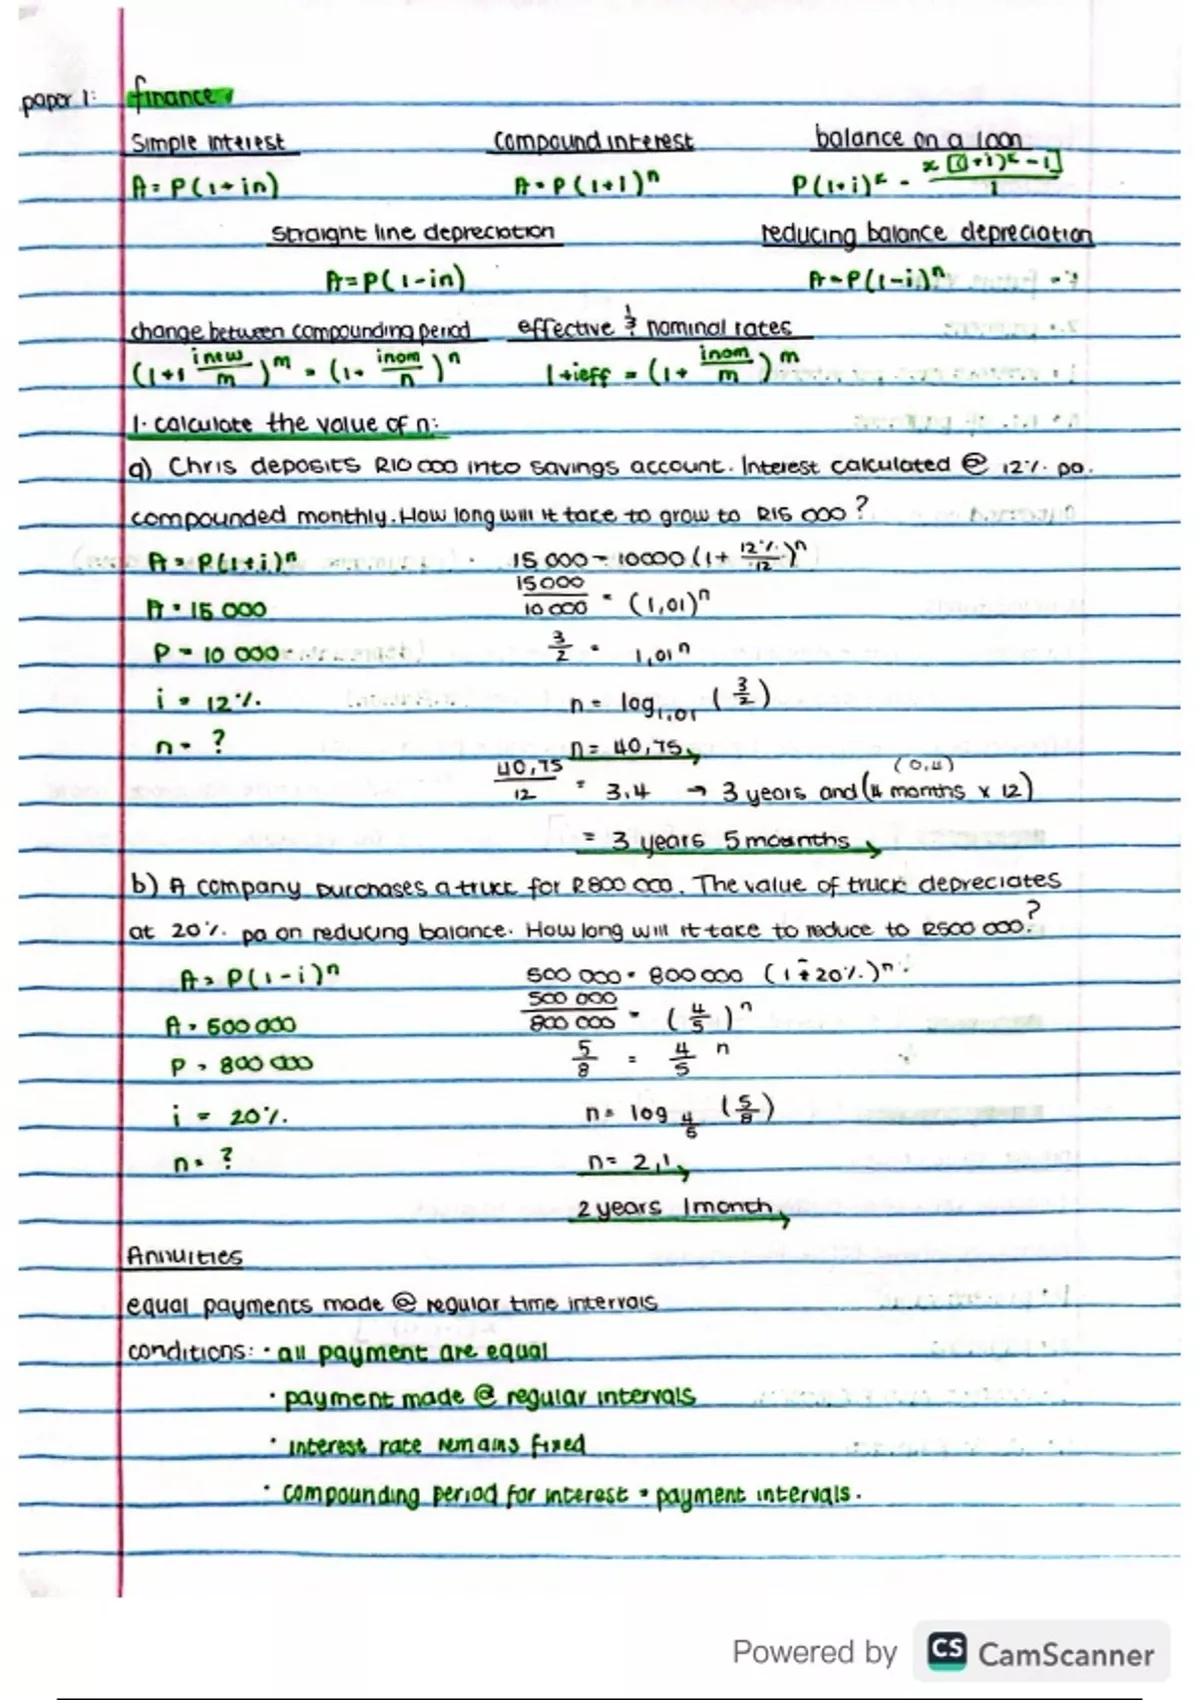 paper 1: finance
Simple interest compound interest balance on a loan
A = P(1+in) A = P(1+i)ⁿ P(1+i)ᵏ - x[(1+i)ᵏ - 1]/i
straight line depreciation reducing balance depreciation
A = P(1-in) A = P(1-i)ⁿ
change between compounding period effective & nominal rates
(1+1 inew/m)ᵐ = (1+ inom/n)ⁿ 1+ieff = (1+ inom/m)ᵐ
1. calculate the value of n:
a) Chris deposits R10 000 into savings account. Interest calculated @ 12% pa.
compounded monthly. How long will it take to grow to R15 000?
A = P(1+i)ⁿ 15 000 = 10000 (1+ 12%/12)ⁿ
A = 15 000 15000/10 000 = (1,01)ⁿ
P = 10 000 3/2 = 1,01ⁿ
i = 12% n = log₁,₀₁ (3/2)
n = ? n = 40,75
40,75/12 = 3.4 → 3 years and (4 months x 12) (0,4)
= 3 years 5 months
b) A company purchases a truck for R800 000. The value of truck depreciates
at 20% pa on reducing balance. How long will it take to reduce to R500 000?
A = P(1-i)ⁿ 500 000 = 800 000 (1-20%)ⁿ
A = 500 000 500 000/800 000 = (4/5)ⁿ
P = 800 000 5/8 = 4/5 ⁿ
i = 20% n = log 4/5 (5/8)
n = ? n = 2,1
2 years 1 month
Annuities
equal payments made @ regular time intervals
conditions: • all payment are equal
• payment made @ regular intervals
• interest rate remains fixed
• compounding period for interest = payment intervals.
Powered by CS CamScanner